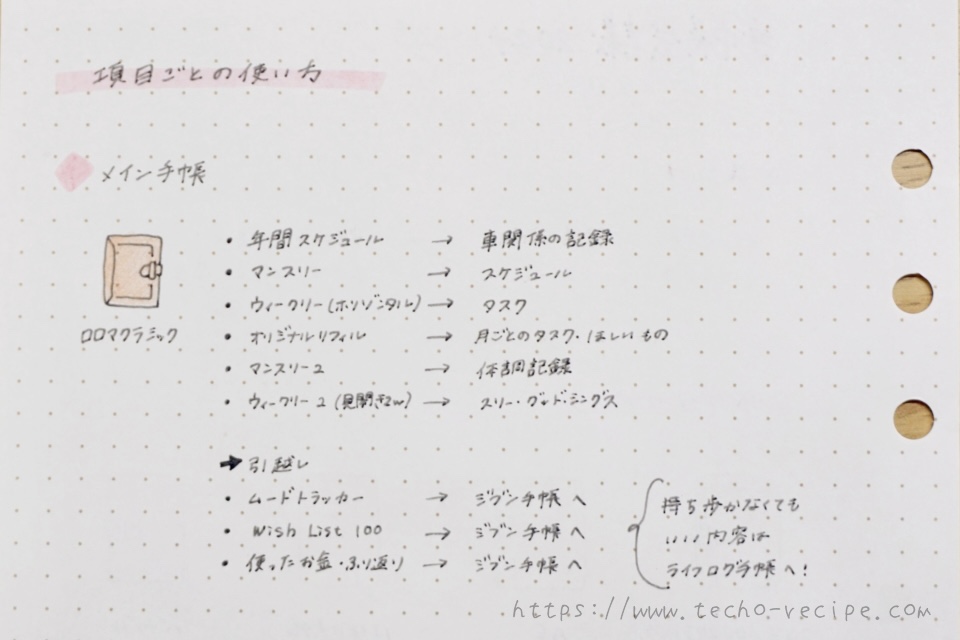 項目ごとの使い方
メイン手帳
ロロマクラシック
• 年間スケジュール → 車関係の記録
• マンスリー → スケジュール
• ウィークリー(ホリゾンタル) → タスク
• オリジナルリフィル → 月ごとのタスク・ほしいもの
• マンスリー2 → 体調記録
• ウィークリー2(見開き2w) → スリー・グッド・シングス
➡ 引越し
• ムードトラッカー → ジブン手帳へ
• Wish List 100 → ジブン手帳へ
• 使ったお金・ふり返り → ジブン手帳へ
持ち歩かなくても
いい内容は
ライフログ手帳へ!
https://www.techo-recipe.com